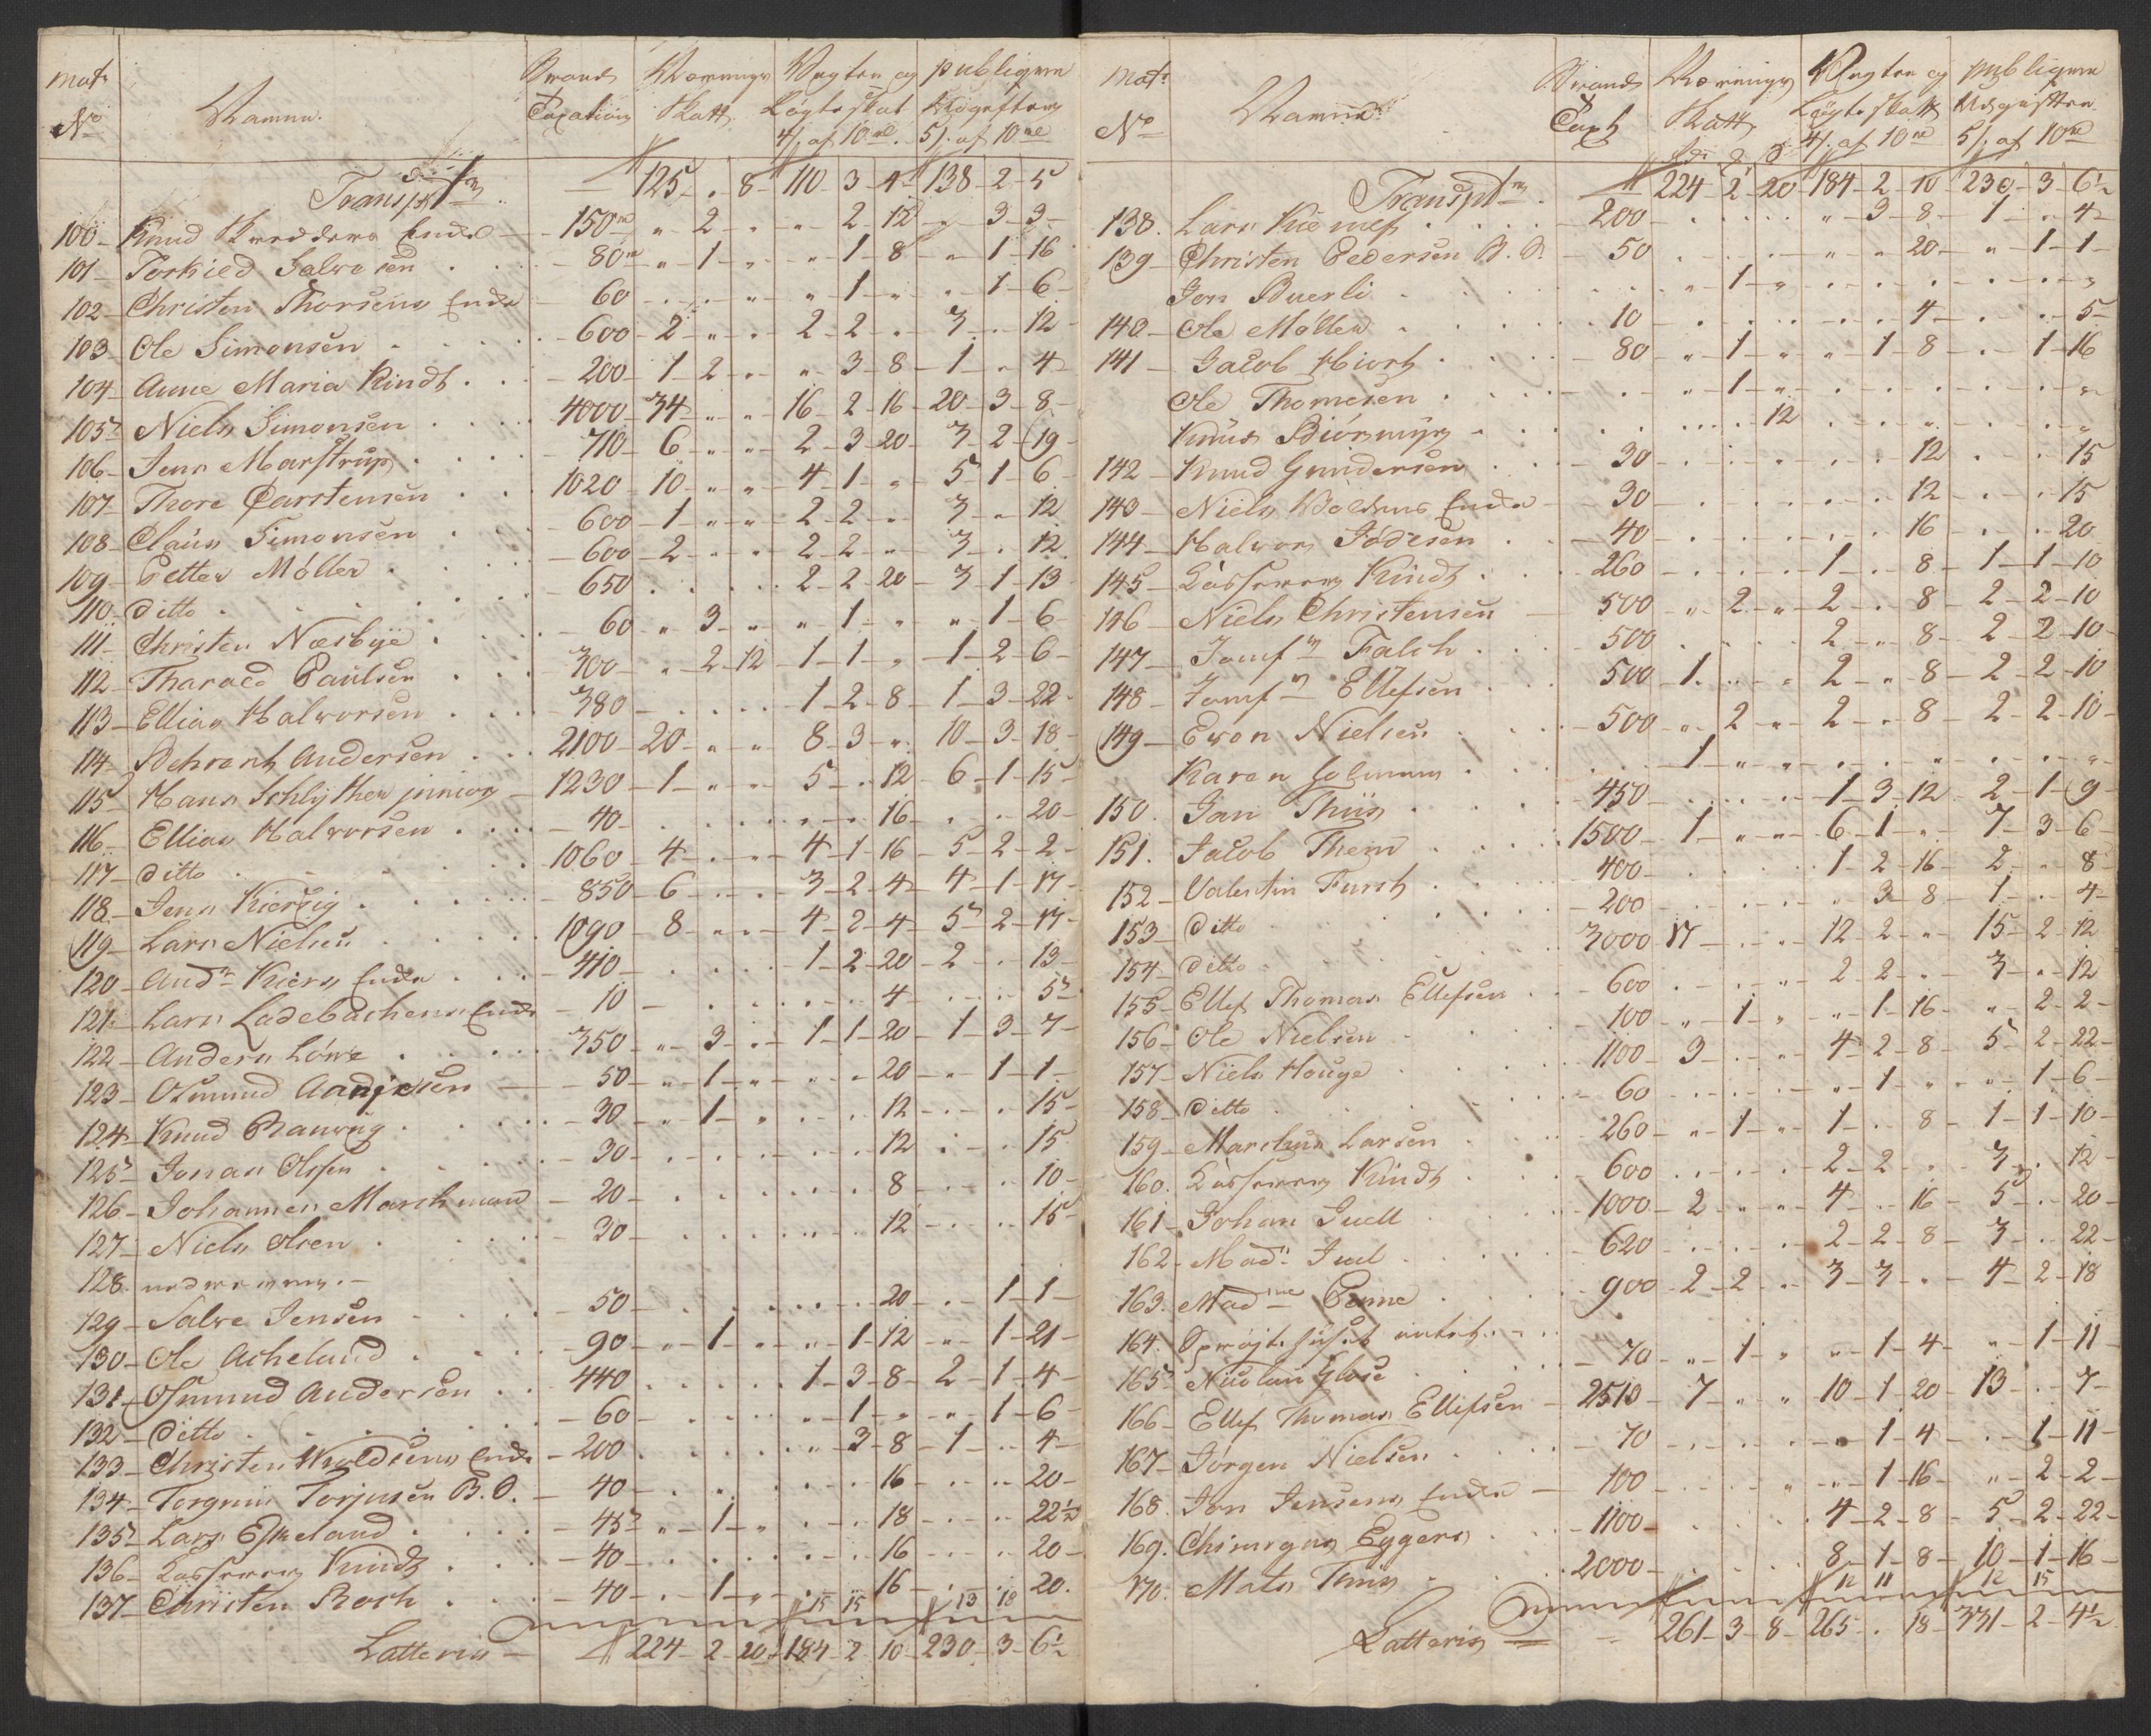 Mat: No
Navnene.
Brand Taxation
Nærings Skatt
Vægter og Løgteskat 4/. af 10 rd
publiqve Udgifter 5/. af 10 rd
Transpt 125 - . - 8 - 110 - 3 - 4 - 138 - 2 - 5
100 - Knud Enke - 150 rd " 2 - " - " 2 - 12 - " 3 - 3
101 - Torkild Salvesen . 80 rd " 1 - " - " 1 - 8 - " 1 - 16
102 - Christen Thorsens Enke - 60 - . - . - " - " 1 - " - " 1 - 6
103 - Ole Simonsen . 600 - 2 - " - " 2 - 2 - . 3 - . 12
104 - Anne Maria Kindt . 200 - 1 - 2 - " - " 3 - 8 - 1 - " 4
105 - Niels Simonsen . 4000 - 34 - " - " 16 - 2 - 16 - 20 - 3 - 8
106 - Jens Marstrup . 710 - 6 - " - " 2 - 3 - 20 - 3 - 2 - 19
107 - Thore Carstensen . 1020 - 10 - " - " 4 - 1 - " 5 - 1 - 6
108 - Claus Simonsen . 600 - 1 - " - " 2 - 2 - " 3 - " 12
109 - Petter Møller . 600 - 2 - " - " 2 - 2 - " 3 - . 12
110 - Ditto . 650 . . . 2 - 2 - 20 - 3 - 1 - 13
111 - Christen Næsbye . 60 - " 3 - " - " 1 - " - " 1 - 6
112 - Tharald Paulsen . 300 - " 2 - 12 - 1 - 1 - " - 1 - 2 - 6
113 - Ellias Halvorsen . 380 - . . . 1 - 2 - 8 - 1 - 3 - 22
114 - Behrent Andersen . 2100 - 20 - " - " 8 - 3 - " 10 - 3 - 18
115 - Hans Schlyther junior - 1230 - 1 - " - " 5 - . 12 - 6 - 1 - 15
116 - Ellias Halvorsen . 40 - . . . . . 16 - . . 20
117 - Ditto . 1060 - 4 - . - " 4 - 1 - 16 - 5 - 2 - 2
118 - Jens Kierzig . 850 - 6 - . . 3 - 2 - 4 - 4 - 1 - 17
119 - Lars Nielsen . 1090 - 8 - " - " 4 - 2 - 4 - 5 - 2 - 17
120 - Ands Kiers Enke . 410 - . . . 1 - 2 - 20 - 2 - . 13
121 - Lars Ladebachens Enke - 10 - . . . . . 4 - . . 5
122 - Anders Løwe . 350 - " 3 - . 1 - 1 - 20 - 1 - 3 - 7
123 - Osmund Aanjesen - 50 - " 1 - " - " " 20 - " 1 - 1
124 - Knud Rauvug . 30 - " 1 - " . . 12 - . . 15
125 - Jonas Olssen . 30 - . . . . . 12 . . 15
126 - Johannes Marchmand - 20 - . . . . . 8 - . . 10
127 - Niels Olsen . 30 - . . . . . 12 - . . 15
128 - nedreven
129 - Salve Jensen . 50 - . . . . . 20 - . 1 - 1
130 - Ole Acheland . 90 - " 1 - " - " 1 - 12 - " 1 - 21
131 - Osmund Andersen . 440 . . . 1 - 3 - 8 - 2 - 1 - 4
132 - Ditto . 60 - . . . " 1 - " - " 1 - 6
133 - Christen Woldsens Enke - 200 . . . " 3 - 8 - 1 - . 4
134 - Torgrim Torjusen B.O. - 40 - . . . . . 16 - . . 20
135 - Lars Eskeland . 45 " 1 - " . . 18 - . . 22 1/2
136 - Lasserey Kindt . 40 - . . . . . 16 - . . 20
137 - Christen Roch . 40 - . 1 - " - . . 16 - . . 20.
15 15 13 18
Latteris - 224 - 2 - 20 - 184 - 2 - 10 - 230 - 3 - 6 1/2
Mat: No
Navnene
Brand Taxt
Nærings Skatt
Vægter og Løgteskatt 4/. af 10 rd
publiqve Udgifter 5/. af 10 rd
Transpt 224 - 2 - 20 - 184 - 2 - 10 - 230 - 3 - 6 1/2
138. Lars . 200 - . . . " 3 - 8 - 1 - " 4
139 - Christen Pedersen B. O. - 50 . . . " " 20 - " 1 - 1
Jon Buerli . . " 1 - " . . . . . "
140 - Ole Møller . 10 - . . . . . 4 - . . 5
141 - Jacob Hiort . 80 - " 1 - " " 1 - 8 - . 1 - 16
Ole Thomesen . . " 1 - " . . . . . "
Knud Biørmyr . . . . 12 . . . . . "
142 - Knud Gundersen . 30 - . . . . . 12 . . 15
143 - Niels Enke - 30 - . . . . . 12 - . . 15
144 - Halvor Jødesen . 40 - . . . . . 16 . . 20
145 - Lasserey Kindt . 260 - . . . 1 - . 8 - 1 - 1 - 10
146 - Niels Christensen - 500 - " 2 - " 2 - . 8 - 2 - 2 - 10
147 - Jomf Falch . 500 . . . 2 - " 8 - 2 - 2 - 10
148 - Jomf Ellefsen . 500 - 1 . . " 2 - " 8 - 2 - 2 - 10
149 - Even Nielsen . 500 - " 2 - " 2 - " 8 - 2 - 2 - 10
Karen . . 1 - " " . . . . . "
150. Jan Thiis . 450 - . . . 1 - 3 - 12 - 2 - 1 - 9
151. Jacob Them . 1500 - 1 - " - " 6 - 1 - " 7 - 3 - 6
152 - Valentin Furst . 400 - . . . 1 - 2 - 16 - 2 - . 8
153 - Ditto . 200 - . . . " 3 - 8 - 1 - . 4
154 - Ditto . 3000 - 17 - . - " 12 - 2 - " 15 - 2 - 12
155 - Ellef Thomas Ellefsen . 600 - . . " 2 - 2 - . 3 - . 12
156 - Ole Nielsen . 100 - " 1 - " " 1 - 16 - " 2 - 2
157 - Niels Houge . 1100 - 3 - . - " 4 - 2 - 8 - 5 - 2 - 22
158 - Ditto . 60 - . . . " 1 - " - " 1 - 6
159 - Marchus Larsen . 260 - " 1 - " 1 - . 8 - 1 - 1 - 10
160. Lasserey Kindt . 600 - . . . 2 - 2 - . 3 - . 12
161 - Johan Juell . 1000 - 2 - " - " 4 - . 16 - 5 - . 20
162 - Mad: Juel . 620 - . . . 2 - 2 - 8 - 3 - . 22
163. Madme Penne . 900 - 2 - 2 - " 3 - 3 - . 4 - 2 - 18
164. Sprøjtehuset intet.
165 - Nicolai Glose . 70 - " 1 - " " 1 - 4 - " 1 - 11
166 - Ellef Thomas Ellefsen - 2510 - 7 - " " 10 - 1 - 20 - 13 - . 7
167 - Jørgen Nielsen . 70 - . . . . 1 - 4 - . 1 - 11
168. Jon Jensens Enke - 100 - . . " " 1 - 16 - " 2 - 2
169. Chirurgus Eggers . 1100 - . . . 4 - 2 - 8 - 5 - 2 - 22
170. Mats Thiis . 2000 - . . . 8 - 1 - 8 - 10 - 1 - 16
12 11 12 15
Latteris - 261 - 3 - 8 - 265 - . 18 - 331 - 2 - 4 1/2